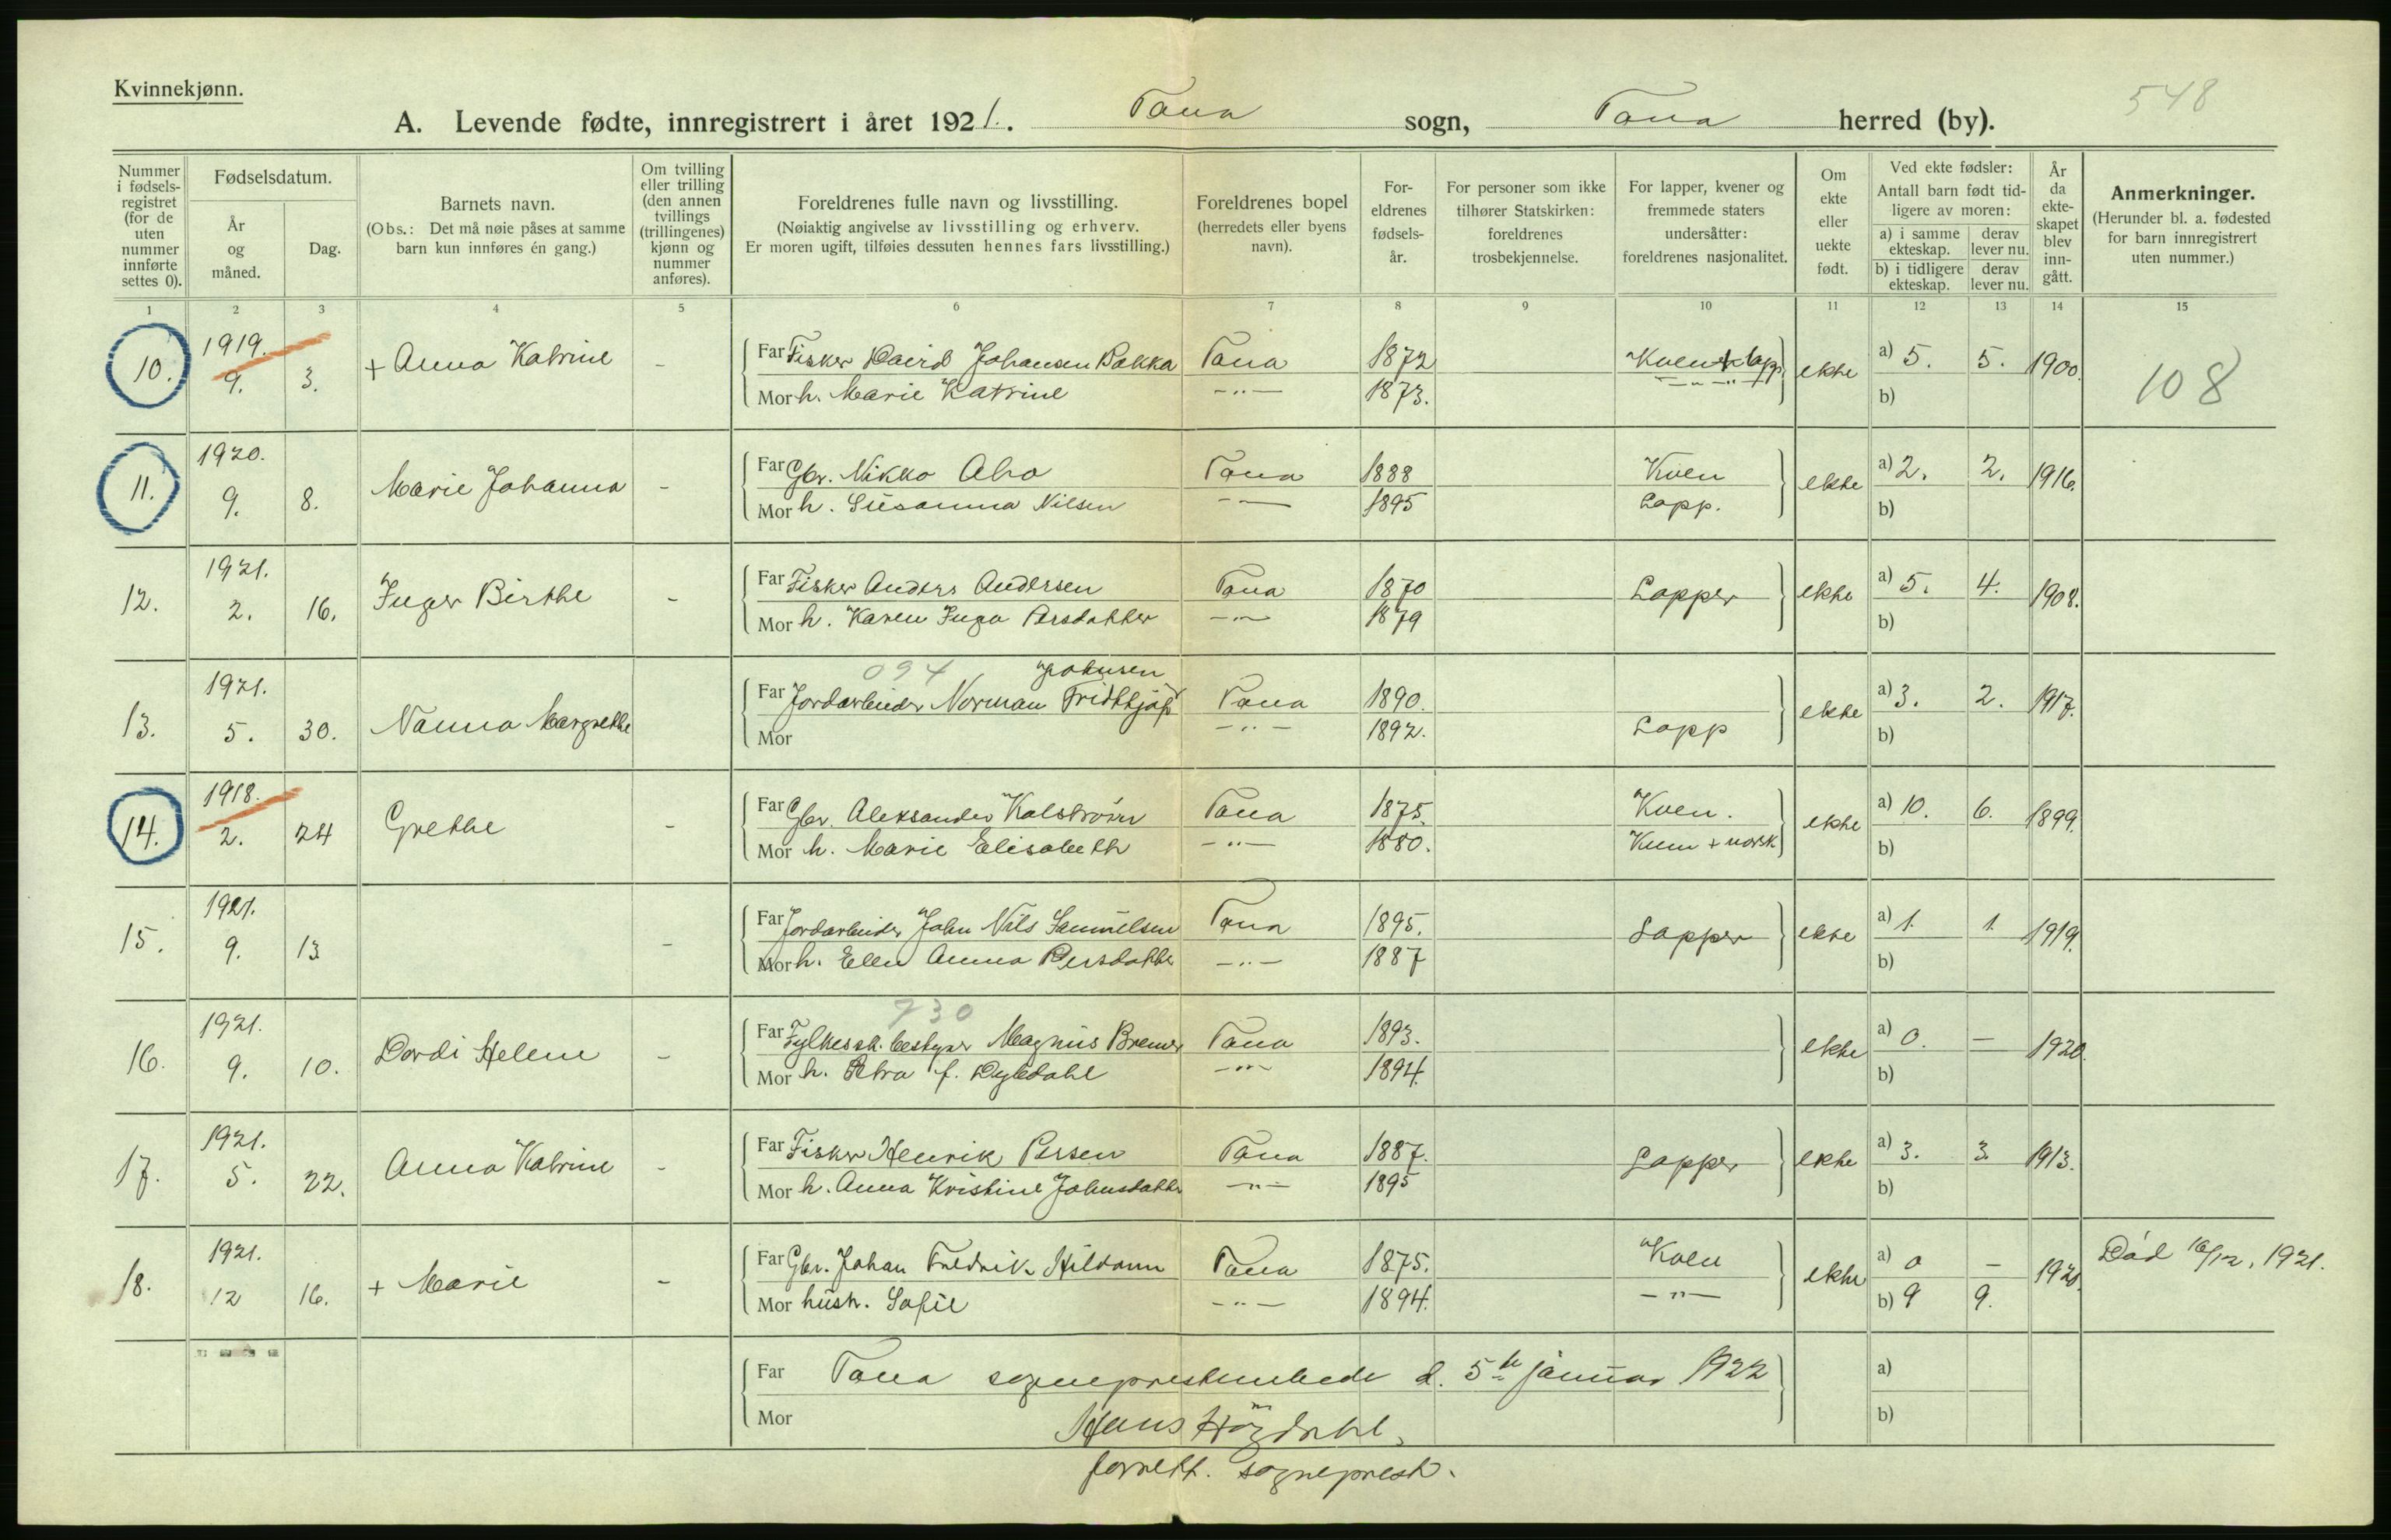 Kvinnekjønn.
548
A. Levende fødte, innregistrert i året 1921. Tana sogn, Tana herred (by).
Nummer i fødselsregistret (for de uten nummer innførte settes 0).
Fødselsdatum.
År og måned.
Dag.
Barnets navn.
(Obs.: Det må nøie påses at samme barn kun innføres én gang.)
Om tvilling eller trilling (den annen tvillings (trillingenes) kjønn og nummer anføres).
Foreldrenes fulle navn og livsstilling.
(Nøiaktig angivelse av livsstilling og erhverv.
Er moren ugift, tilføies dessuten hennes fars livsstilling.)
Foreldrenes bopel
(herredets eller byens navn).
Foreldrenes fødselsår.
For personer som ikke tilhører Statskirken: foreldrenes trosbekjennelse.
For lapper, kvener og fremmede staters undersåtter: foreldrenes nasjonalitet.
Om ekte eller uekte født.
Ved ekte fødsler:
Antall barn født tidligere av moren:
a) i samme ekteskap.
derav lever nu.
b) i tidligere ekteskap.
derav lever nu.
År da ekteskapet blev inngått.
Anmerkninger.
(Herunder bl. a. fødested for barn innregistrert uten nummer.)
1 2 3 4 5 6 7 8 9 10 11 12 13 14 15
10. 1919. 9. 3. + Anna Katrine -
Far Fisker David Johansen Bakka Tana 1872 Kven + lapp ekte a) 5. 5. 1900.
Mor h. Marie Katrine -"- 1873. -"- b)
108
11. 1920. 9. 8. Marie Johanna -
Far Gbr. Nikko Aho Tana 1888 Kven ekte a) 2. 2. 1916.
Mor h. Susanna Nilsen -"- 1895 Lapp. b)
12. 1921. 2. 16. Inger Birthe -
Far Fisker Anders Andersen Tana 1870 Lapper ekte a) 5. 4. 1908.
Mor h. Karen Inga Persdatter -"- 1879 b)
13. 1921. 5. 30. Nanna Margrethe
094 Johnsen
Far Jordarbeider Norman Fridthjof Tana 1890. ekte a) 3. 2. 1917.
Mor -"- 1892. Lapp b)
14. 1918. 2. 24 Grethe -
Far Gbr. Aleksander Kalstrøm Tana 1875. Kven. ekte a) 10. 6. 1899.
Mor h. Marie Elisabeth -"- 1880. Kven + norsk b)
15. 1921. 9. 13 -
Far Jordarbeider John Nils Samuelsen Tana 1895. Lapper ekte a) 1. 1 1919.
Mor h. Ellen Anna Persdatter -"- 1887 b)
16. 1921. 9. 10. Dordi Helene -
730
Far Fylkessk. bestyrer Magnus Bremer Tana 1893. ekte a) 0. - 1920.
Mor h. Petra f. Dybdahl -"- 1894. b)
17. 1921. 5. 22. Anna Katrine -
Far Fisker Henrik Persen Tana 1887. Lapper ekte a) 3. 3. 1913.
Mor h. Anna Kristine Johnsdatter -"- 1895 b)
18. 1921. 12 16. + Marie -
Far Gbr. Johan Fredrik Hildonen Tana 1875. Kven ekte a) 0 - 1921.
Mor hustr. Sofie -"- 1894. -"- b) 9 9.
Död 16/12, 1921.
Far Tana sogneprestembede d. 5te januar 1922 a)
Mor Hans Höydahl, b)
forrett. sogneprest.